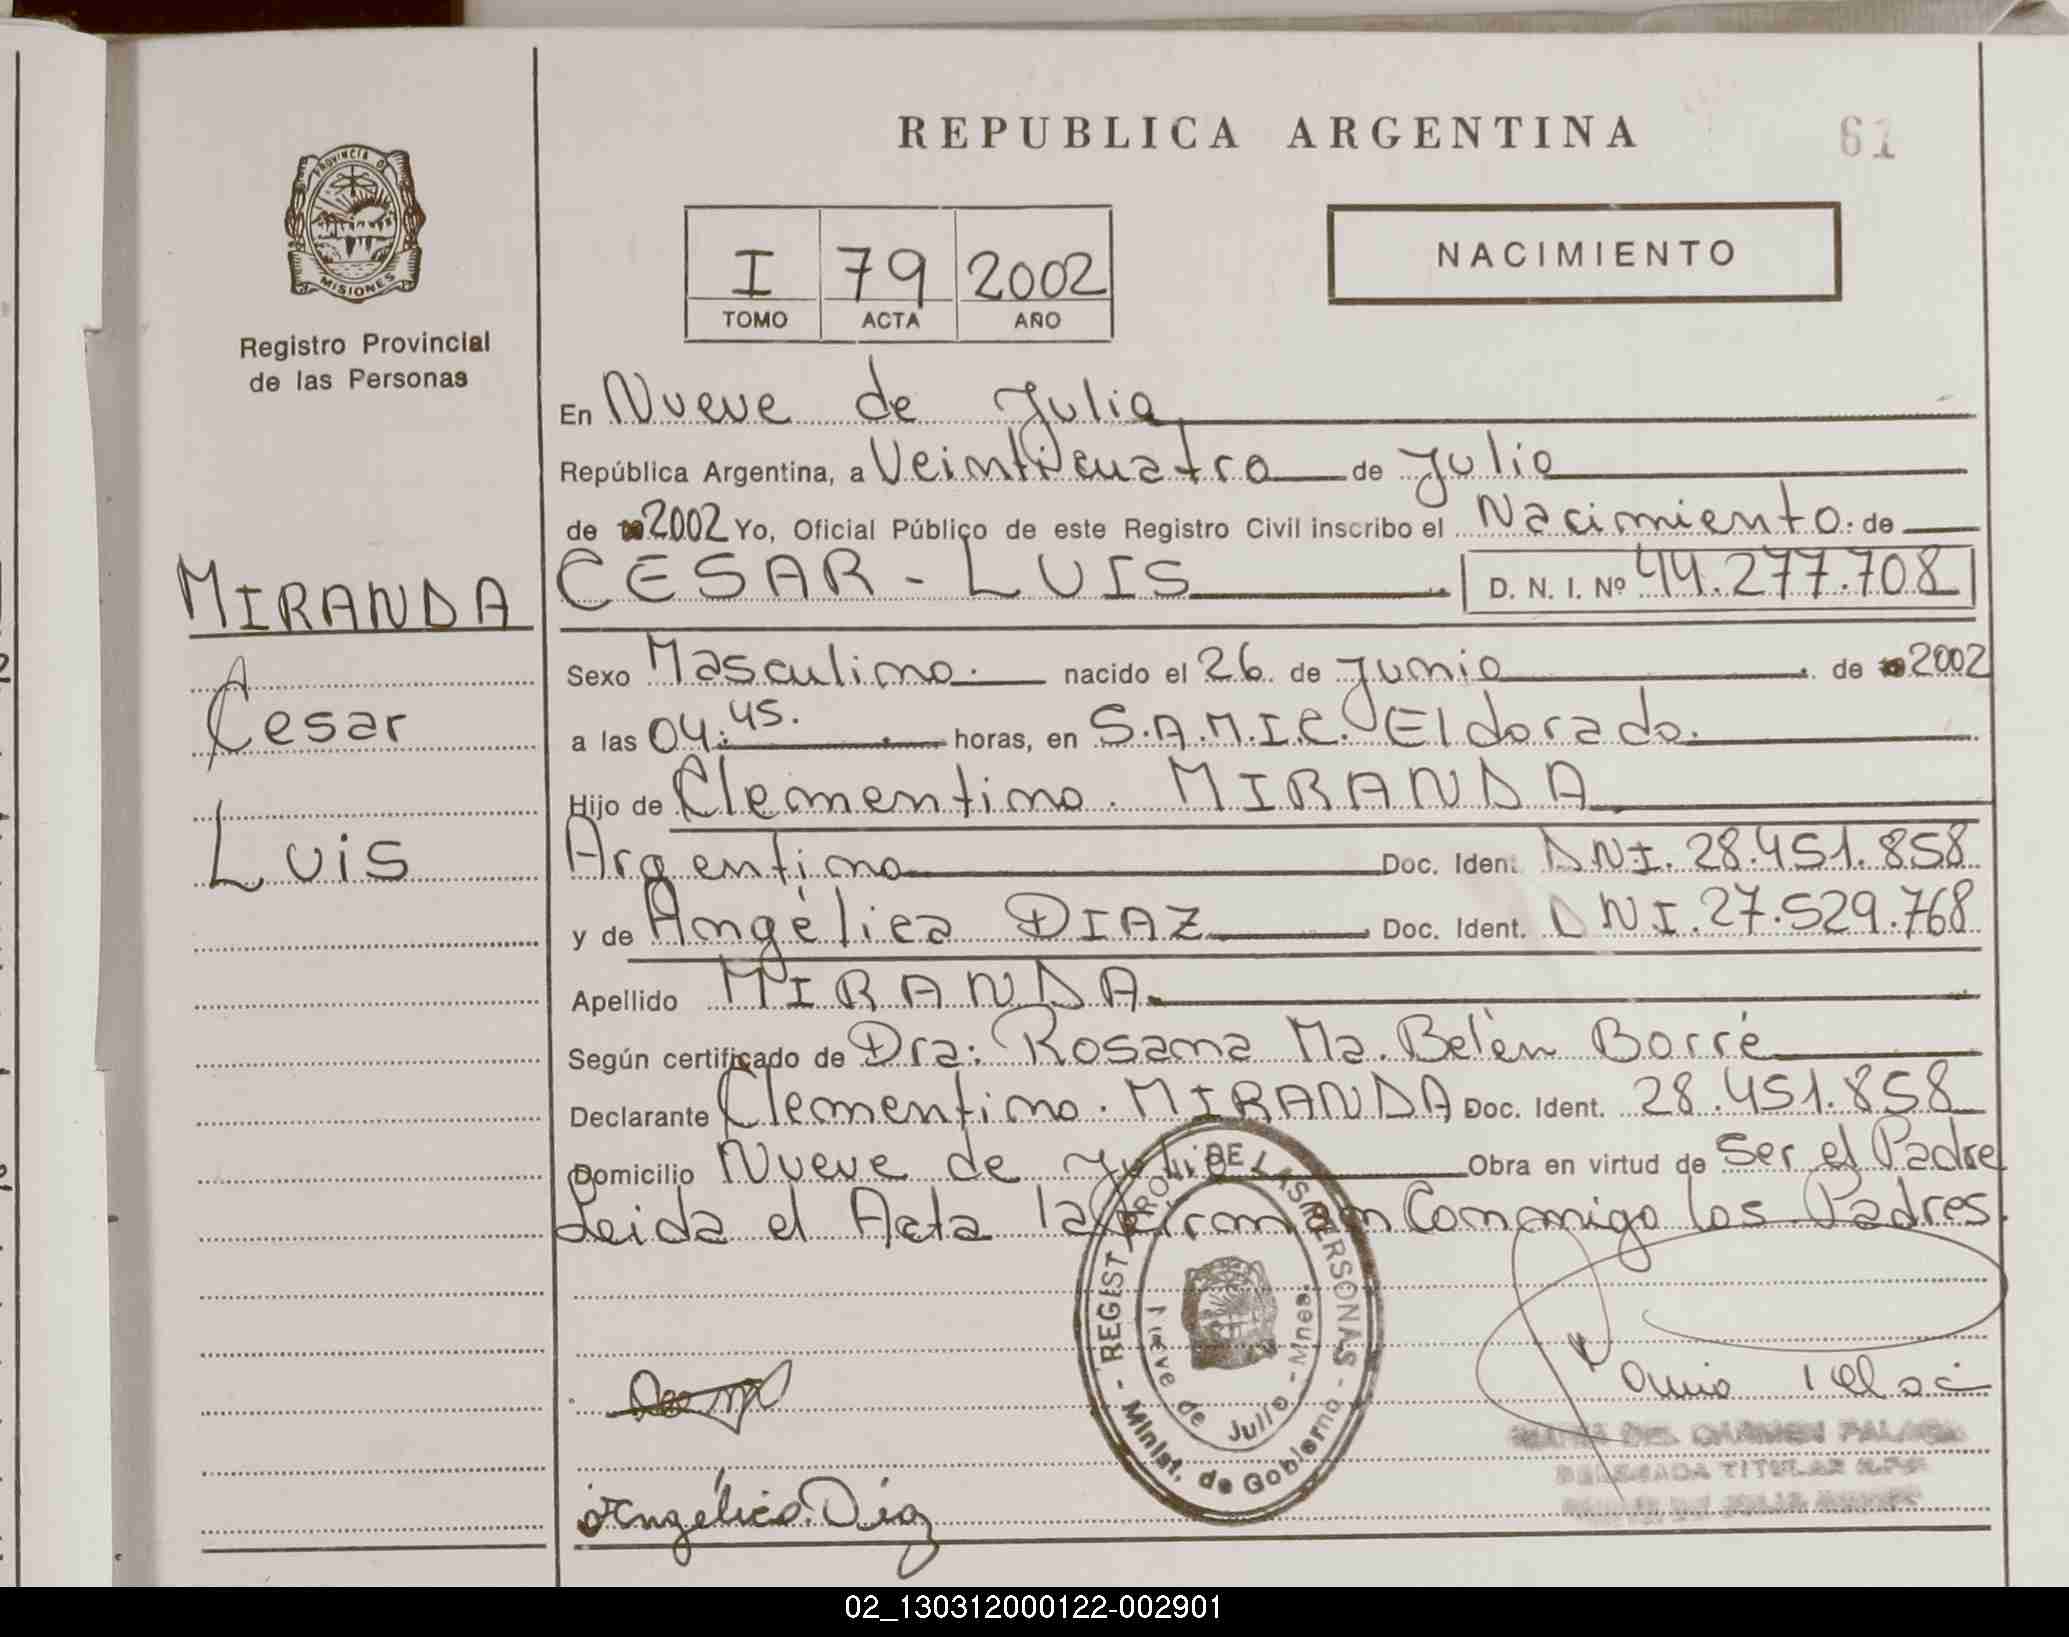 REPUBLICA ARGENTINA
61
PROVINCIA DE
MISIONES
Registro Provincial
de las Personas
I 79 2002
TOMO ACTA AÑO
NACIMIENTO
En Nueve de Julio
República Argentina, a Veinticuatro de Julio
de 2002 Yo, Oficial Público de este Registro Civil inscribo el Nacimiento. de
MIRANDA
Cesar
Luis
CESAR - LUIS D. N. I. Nº 44.277.708
Sexo Masculino. nacido el 26 de Junio de 2002
a las 04:45. horas, en S.A.M.I.C. Eldorado.
Hijo de Clementino. MIRANDA
Argentino Doc. Ident. DNI. 28.451.858
y de Angélica DIAZ Doc. Ident. DNI. 27.529.768
Apellido MIRANDA
Según certificado de Dra: Rosana Ma. Belén Borré
Declarante Clementino. MIRANDA Doc. Ident. 28.451.858
Domicilio Nueve de Julio Obra en virtud de Ser el Padre
Leida el Acta la firman Conmigo los Padres.
REGIST. PROV. DE LAS PERSONAS - Minist. de Gobierno -
Nueve de Julio - Mnes.
Angélica Díaz
MARIA DEL CARMEN
DELEGADA TITULAR
02_130312000122-002901